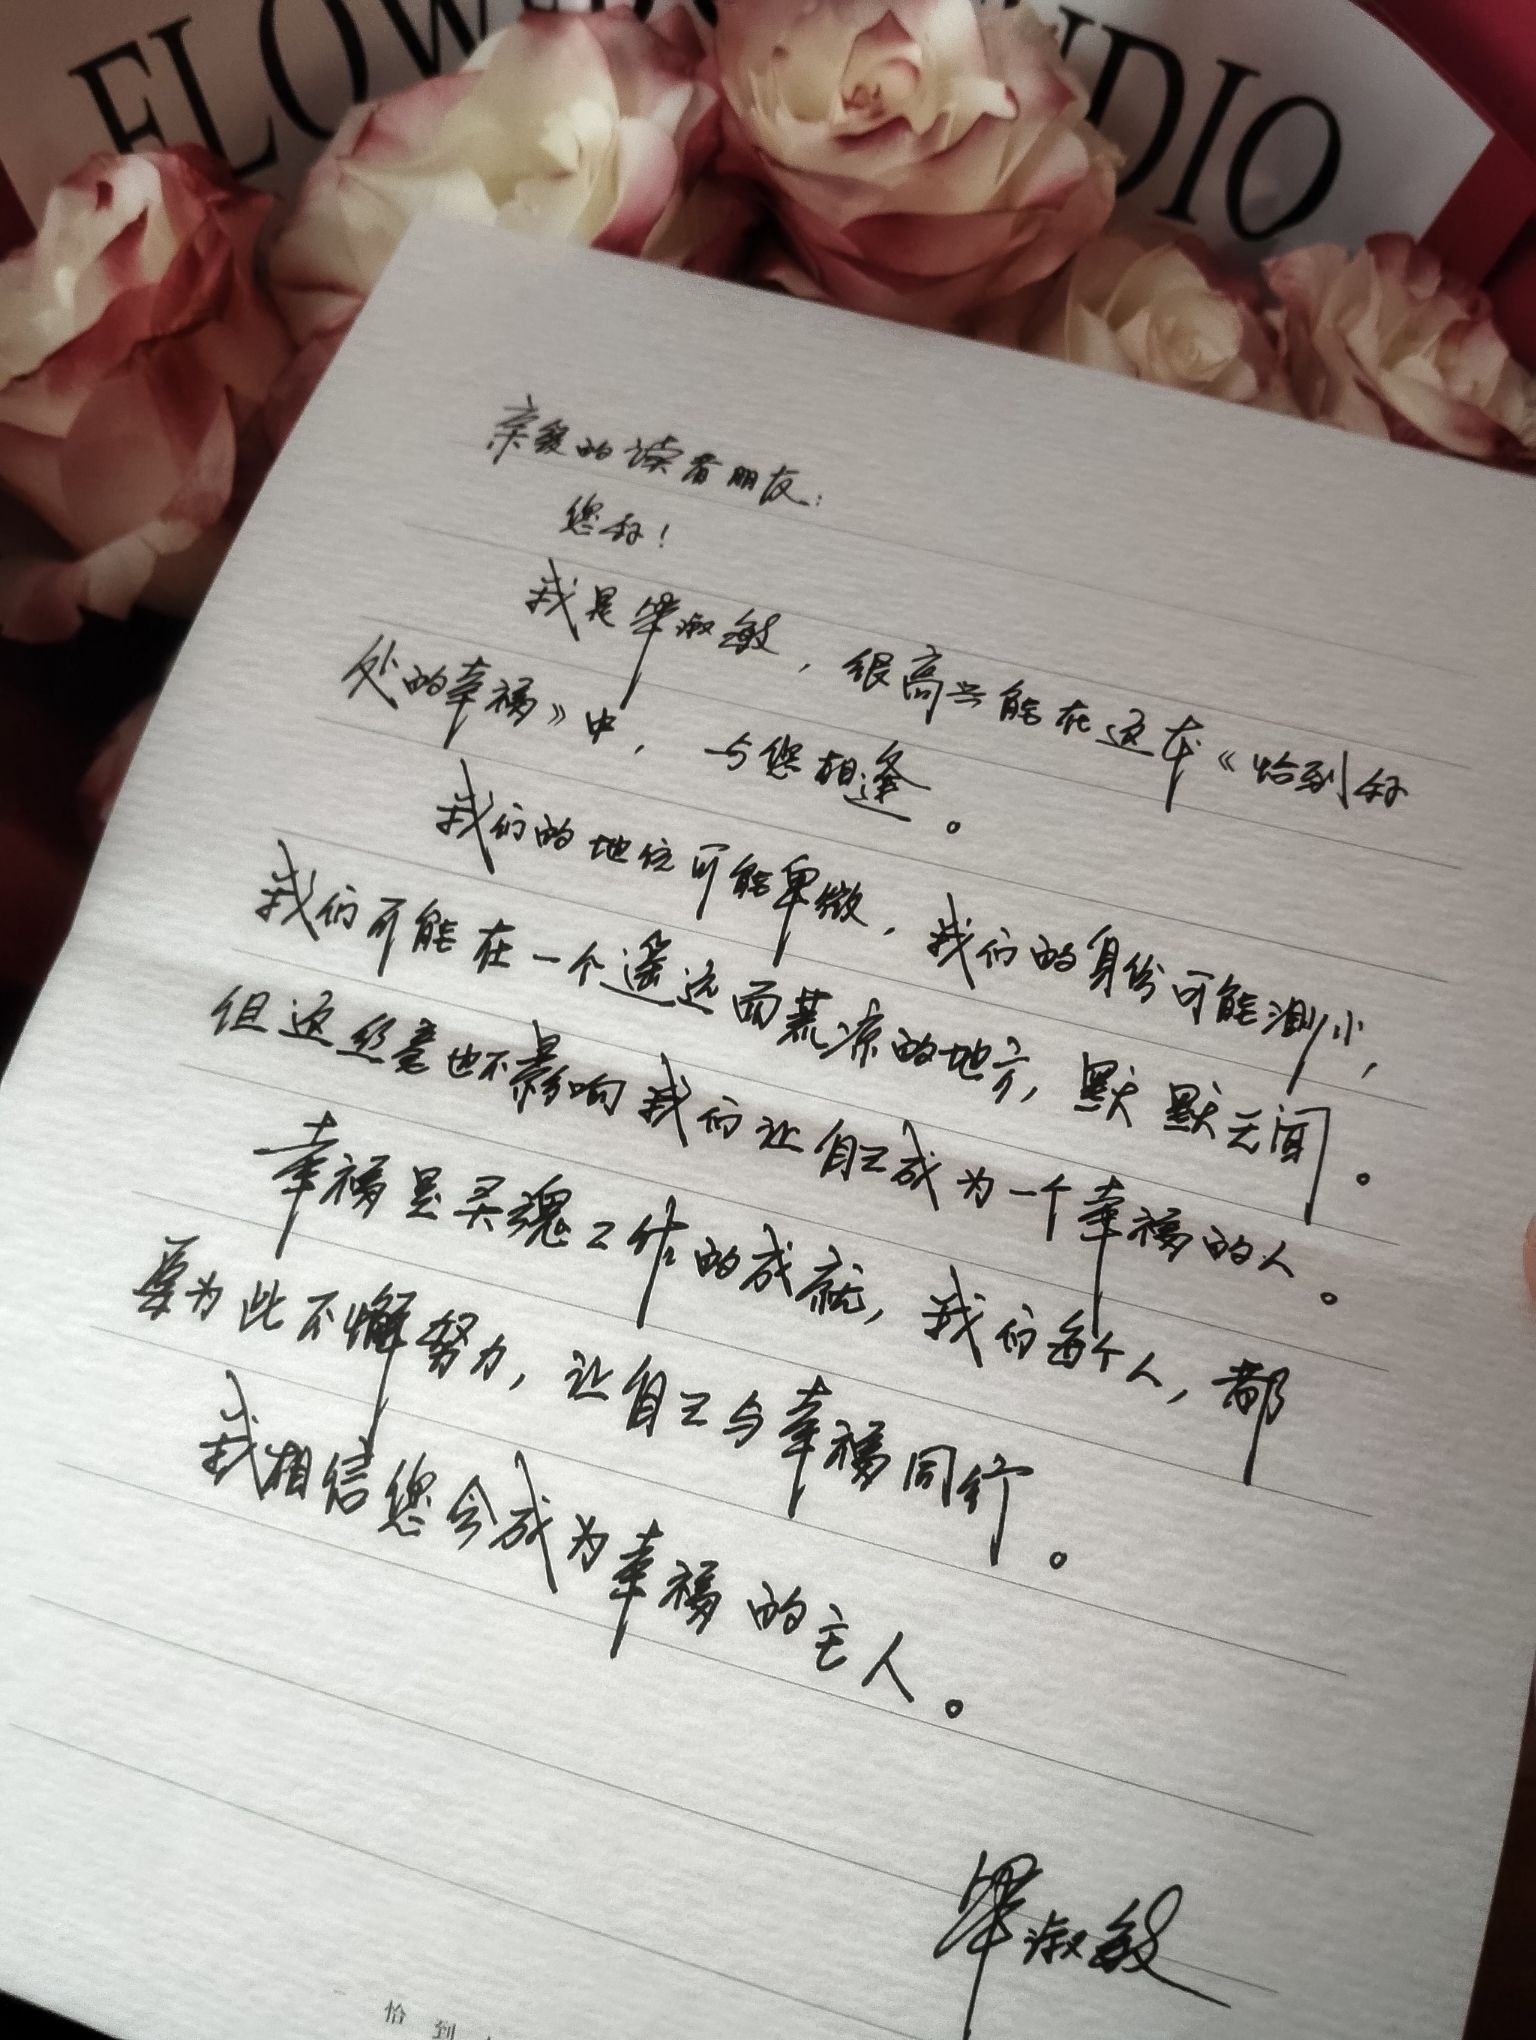 FLOW
UDIO
亲爱的读者朋友：
您好！
我是毕淑敏，很高兴能在这本《恰到好
处的幸福》中，与您相逢。
我们的地位可能卑微，我们的身份可能渺小，
我们可能在一个遥远而荒凉的地方，默默无闻。
但这丝毫也不影响我们让自己成为一个幸福的人。
幸福是灵魂工作的成就，我们每个人，都
要为此不懈努力，让自己与幸福同行。
我相信您会成为幸福的主人。
毕淑敏
恰到